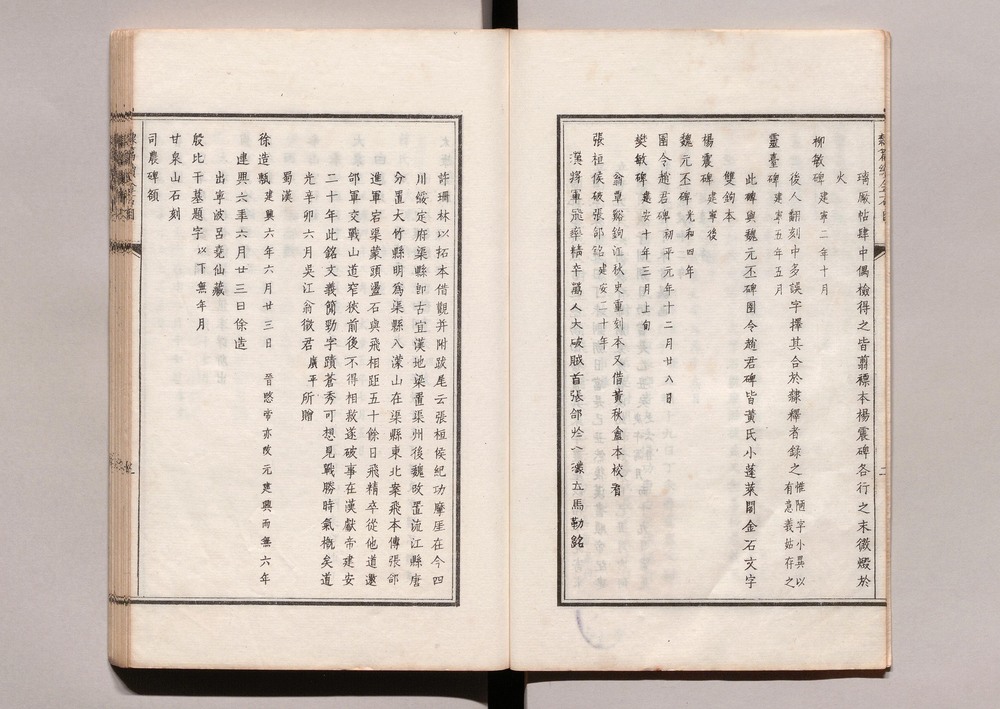 璃厰帖肆中偶檢得之皆翦褾本楊震碑各行之末微燬於
火
柳敏碑 建寧二年十月
後人翻刻中多誤字擇其合於隸釋者錄之 惟陋字小異以
有意義姑存之
靈臺碑 建寧五年五月
此碑與魏元丕碑圉令趙君碑皆黃氏小蓬萊閣金石文字
雙鉤本
楊震碑 建寧後
魏元丕碑 光和四年
圉令趙君碑 初平元年十二月廿八日
樊敏碑 建安十年三月上旬
翁覃谿鉤江秋史重刻本又借黃秋盦本校者
張桓侯破張郃銘 建安二十年
漢將軍飛率精卒萬人大破賊首張郃於八濛立馬勒銘
許珊林以拓本借觀并附跋尾云張桓侯紀功摩厓在今四
川綏定府渠縣卽古宜漢地梁置渠州後魏改置流江縣唐
分置大竹縣明爲渠縣八濛山在渠縣東北案飛本傳張郃
進軍宕渠蒙頭盪石與飛相距五十餘日飛精卒從他道邀
郃軍交戰山道窄狹前後不得相救遂破事在漢獻帝建安
二十年此銘文義簡勁字蹟蒼秀可想見戰勝時氣槪矣道
光辛卯六月吳江翁徵君 廣平 所贈
蜀漢
徐造甎 建興六年六月廿三日 晉愍帝亦改元建興而無六年
建興六年六月廿三日徐造
出寧波呂堯仙藏
殷比干墓題字 以下無年月
甘泉山石刻
司農碑領